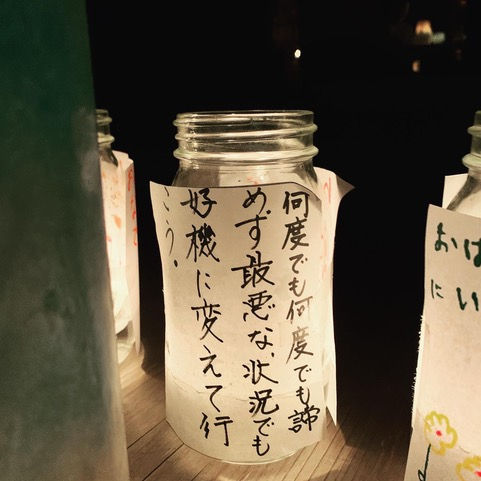 何度でも何度でも諦
めず最悪な状況でも
好機に変えて行
こう。
おは
にい